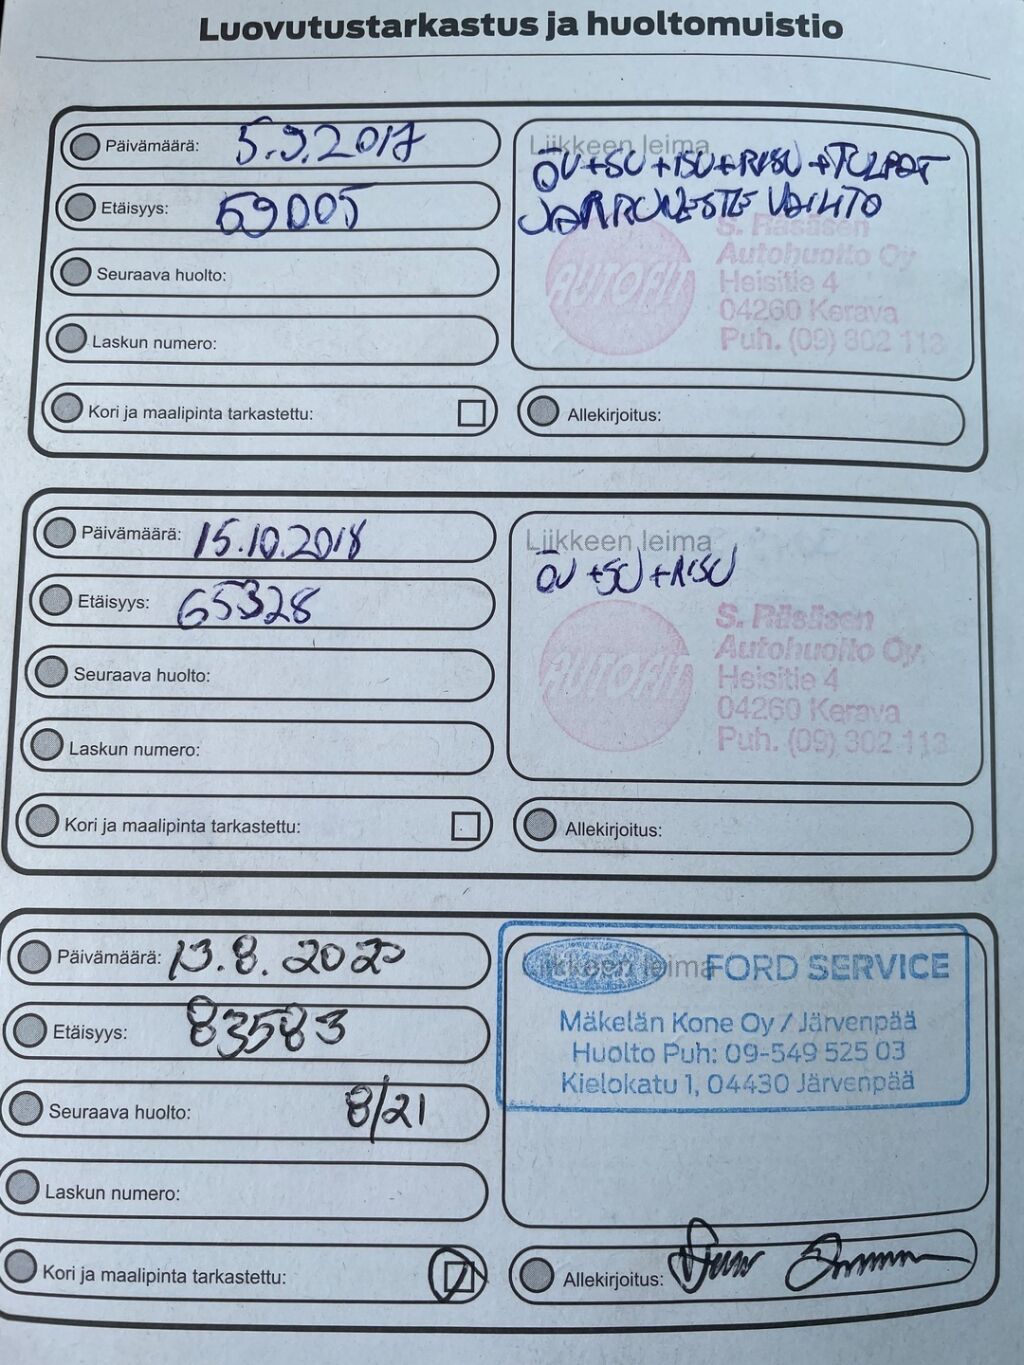 Luovutustarkastus ja huoltomuistio
Päivämäärä: 5.9.2017
Etäisyys: 59005
Seuraava huolto:
Laskun numero:
Kori ja maalipinta tarkastettu:
Liikkeen leima
ÖV+SV+ISV+RISV+TULPAT
JARRUNESTE VAIHTO
AUTOFIT
S. Räsäsen
Autohuolto Oy
Heisitie 4
04260 Kerava
Puh. (09) 302 113
Allekirjoitus:
Päivämäärä: 15.10.2018
Etäisyys: 65328
Seuraava huolto:
Laskun numero:
Kori ja maalipinta tarkastettu:
Liikkeen leima
ÖV+SV+RISV
AUTOFIT
S. Räsäsen
Autohuolto Oy
Heisitie 4
04260 Kerava
Puh. (09) 302 113
Allekirjoitus:
Päivämäärä: 13.8.2020
Etäisyys: 83583
Seuraava huolto: 8/21
Laskun numero:
Kori ja maalipinta tarkastettu:
Liikkeen leima
FORD SERVICE
Mäkelän Kone Oy / Järvenpää
Huolto Puh: 09-549 525 03
Kielokatu 1, 04430 Järvenpää
Allekirjoitus: